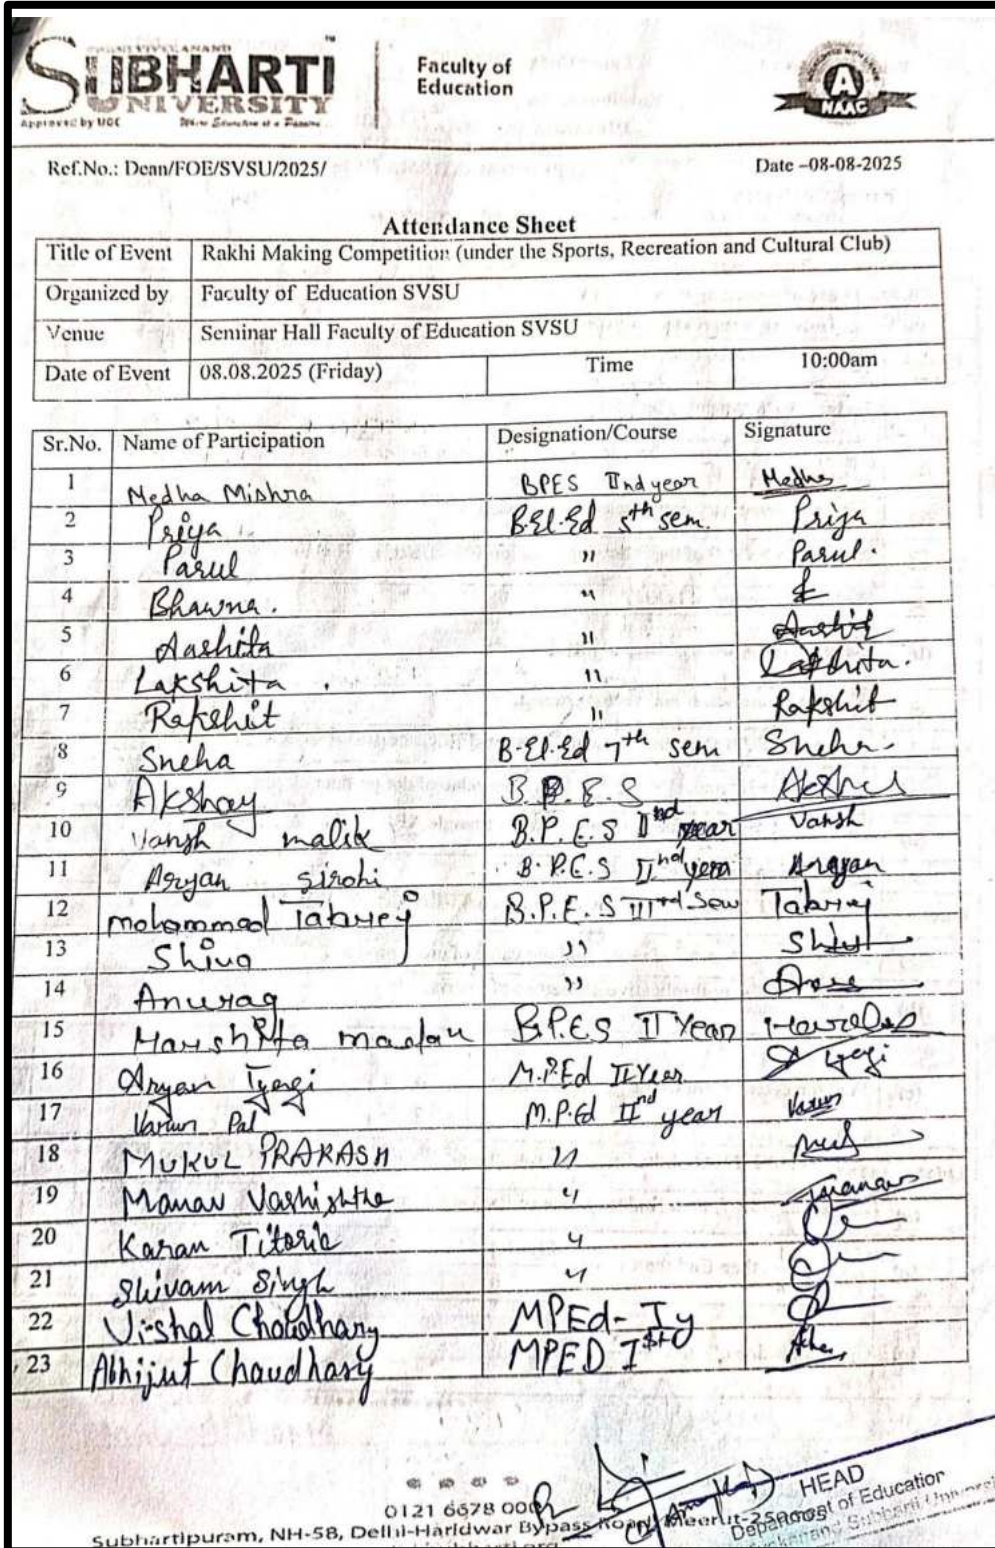 SWAMI VIVEKANAND
SUBHARTI
UNIVERSITY
Approved by UGC Where Education is a Passion
TM
Faculty of
Education
A
NAAC
Ref.No.: Dean/FOE/SVSU/2025/ Date –08-08-2025
Attendance Sheet
Title of Event Rakhi Making Competition (under the Sports, Recreation and Cultural Club)
Organized by Faculty of Education SVSU
Venue Seminar Hall Faculty of Education SVSU
Date of Event 08.08.2025 (Friday) Time 10:00am
Sr.No. Name of Participation Designation/Course Signature
1 Medha Mishra BPES IInd year Medha
2 Priya B.El.Ed 5th sem. Priya
3 Parul " Parul.
4 Bhawna. "
5 Aashita "
6 Lakshita . " Lakshita.
7 Rakshit " Rakshit
8 Sneha B-El-Ed 7th sem Sneha
9 Akshay B.P.E.S
10 Vansh malik B.P.E.S IInd year Vansh
11 Aryan sirohi B.P.E.S IInd year Aryan
12 mohommad Tabrej B.P.E.S III Tabrej
13 Shiva "
14 Anurag "
15 Harshita madan B.P.E.S II Year
16 Aryan Tyagi M.P.Ed II Year
17 Varun Pal M.P.Ed IInd year Varun
18 MUKUL PRAKASH "
19 Manav Vashishtha " Manav
20 Karan Titoria "
21 Shivam Singh "
22 Vishal Choudhary MPEd- Iy
23 Abhijeet Chaudhary MPED Ist
0121 6678 000
HEAD
Department of Education
Subhartipuram, NH-58, Delhi-Haridwar Bypass Road, Meerut-250005